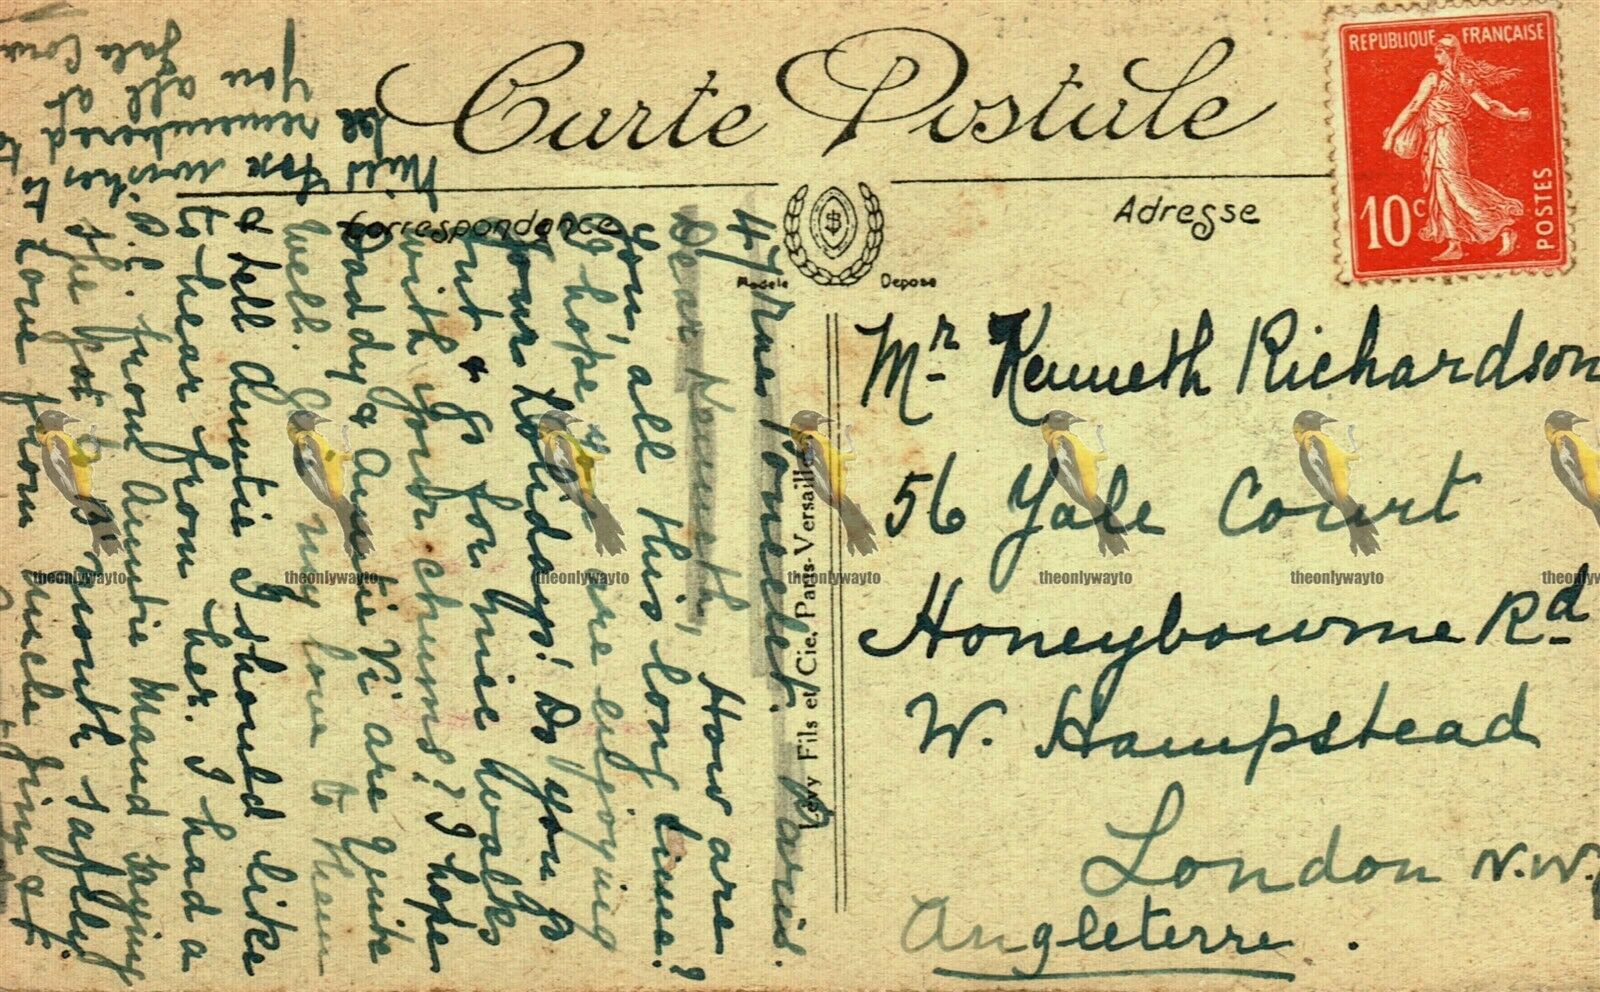 Carte Postale
REPUBLIQUE FRANÇAISE
10c
POSTES
Correspondance
Adresse
Modèle
Déposé
Levy Fils et Cie, Paris-Versailles
Mr Kenneth Richardson
56 Yale Court
Honeybourne Rd
W. Hampstead
London N.W.
Angleterre.
4 Rue Poncelet. Paris.
Dear Kenneth, How are
you, all this long time?
I hope you are enjoying
your holidays! Do you go
out & go for nice walks
with your chums? I hope
Daddy & Auntie Vi are quite
well. Give my love to them
& tell Auntie I should like
to hear from her. I had a
P.C. from Auntie Maud saying
she got to B'mouth safely.
Love from Uncle Jim &
Miss Fox wishes to
be remembered to
you all at
Yale Court
theonlywayto
theonlywayto
theonlywayto
theonlywayto
theonlywayto
theonlywayto
theonlywayto